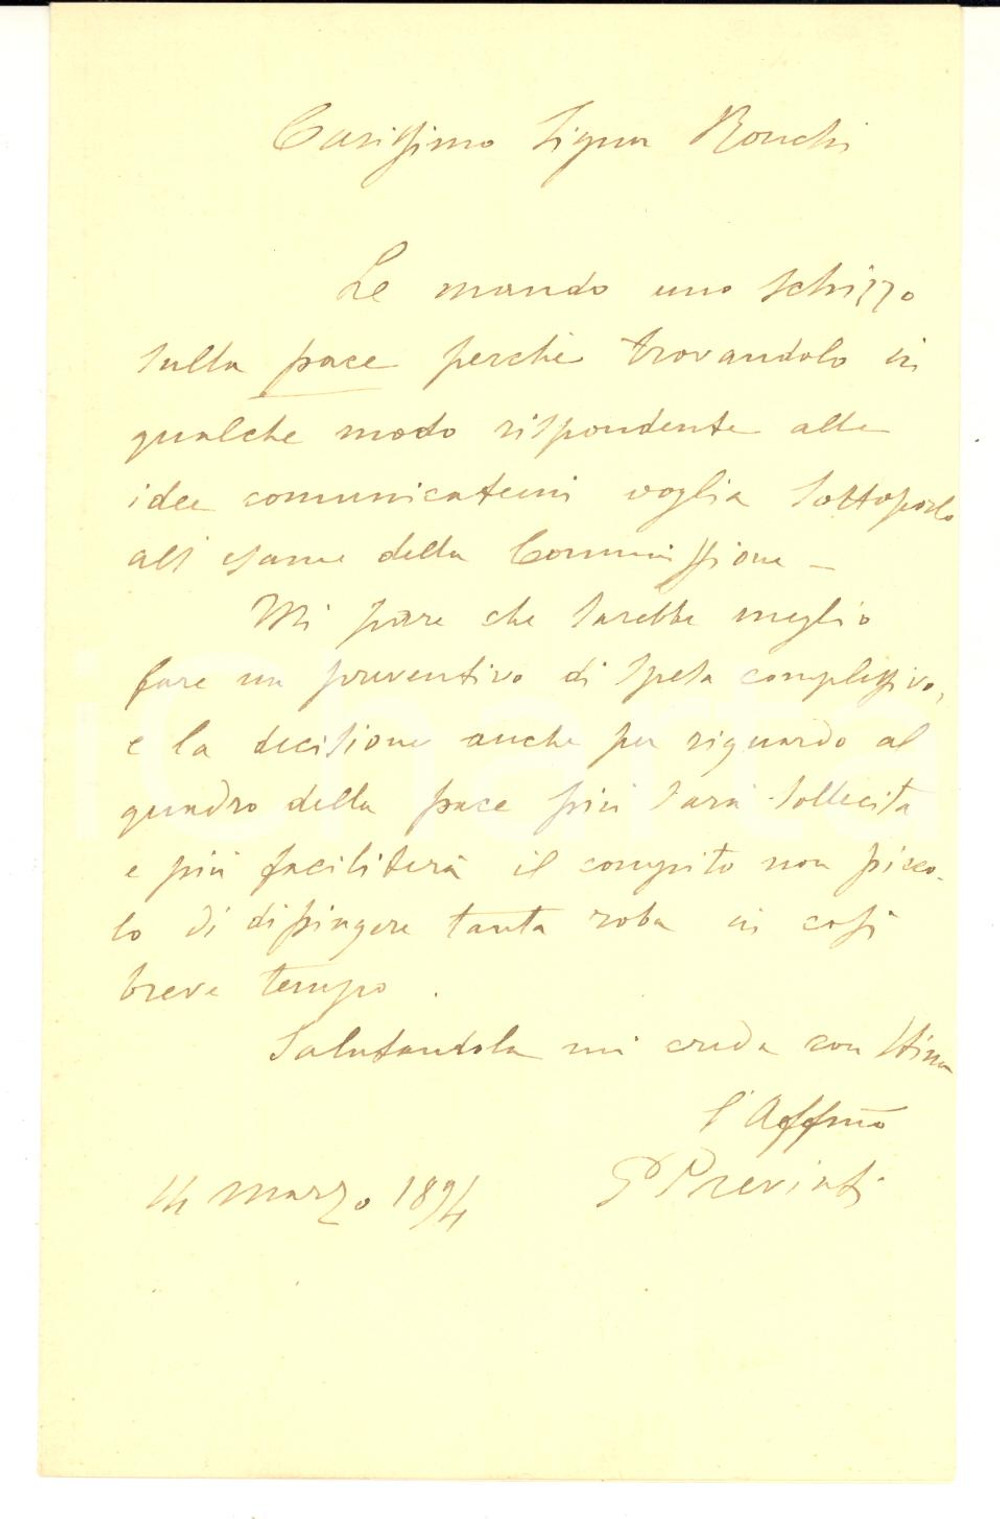 Carissimo Signor Ronchi
Le mando uno schizzo
sulla pace perchè trovandolo in
qualche modo rispondente alle
idee comunicatemi voglia sottoporlo
all'esame della Commissione —
Mi pare che sarebbe meglio
fare un preventivo di spesa complessivo,
e la decisione anche per riguardo al
quadro della pace più sarà sollecita
e più faciliterà il compito non picco-
lo di dipingere tanta roba in così
breve tempo.
Salutandola mi creda con stima
l'Affmo
G Previati
14 Marzo 1894